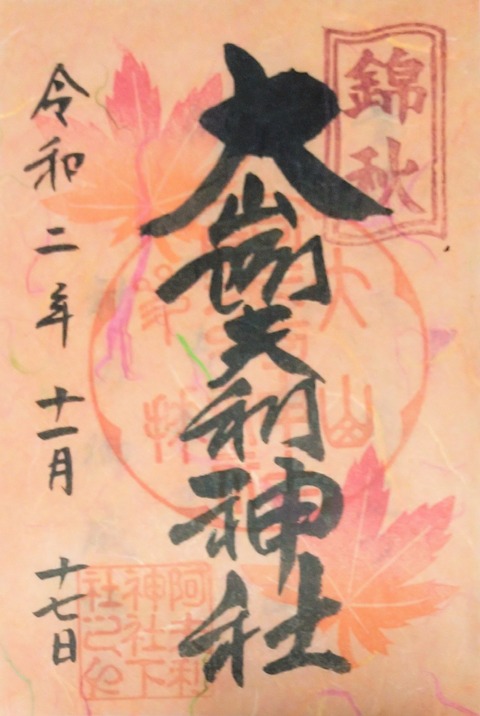 錦秋
大山阿夫利神社
令和二年十一月十七日
阿夫利
神社下
社之印